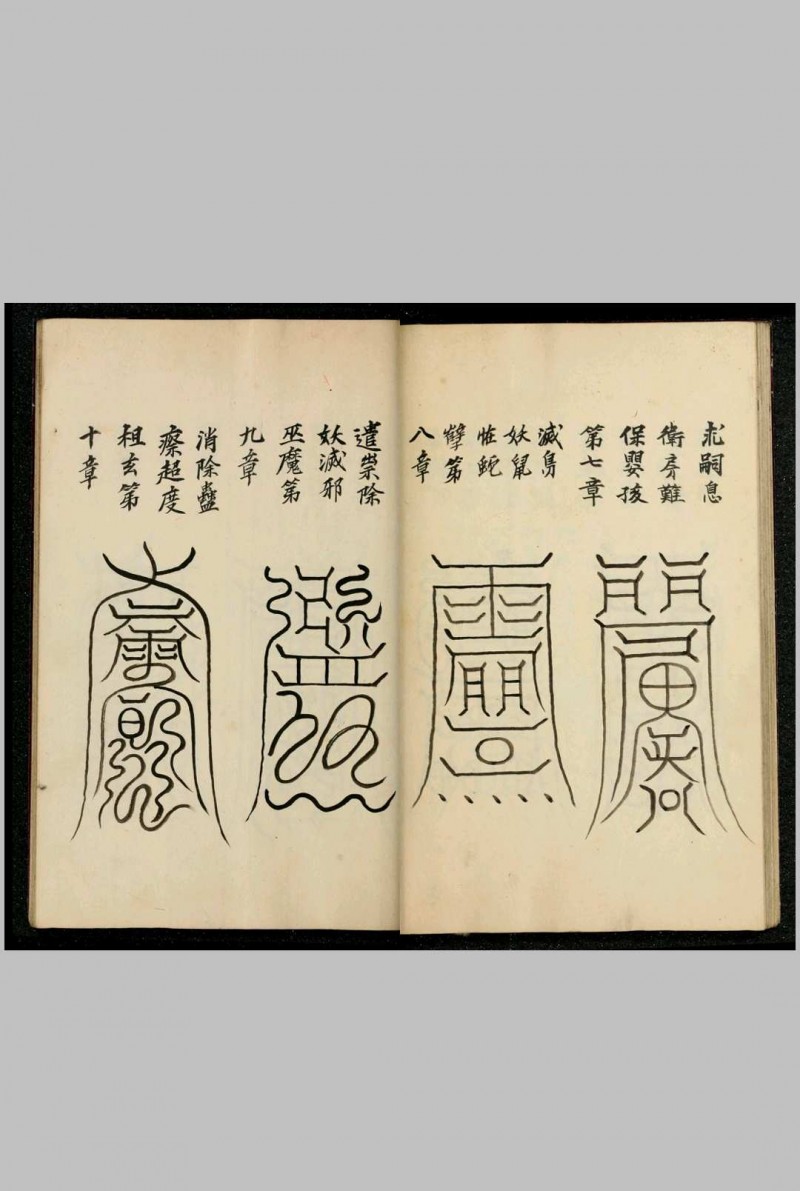 求嗣息
衛房難
保嬰孩
第七章
滅鳥
妖鼠
怪蛇
孽第
八章
遣祟除
妖滅邪
巫魔第
九章
消除蠱
瘵超度
祖玄第
十章